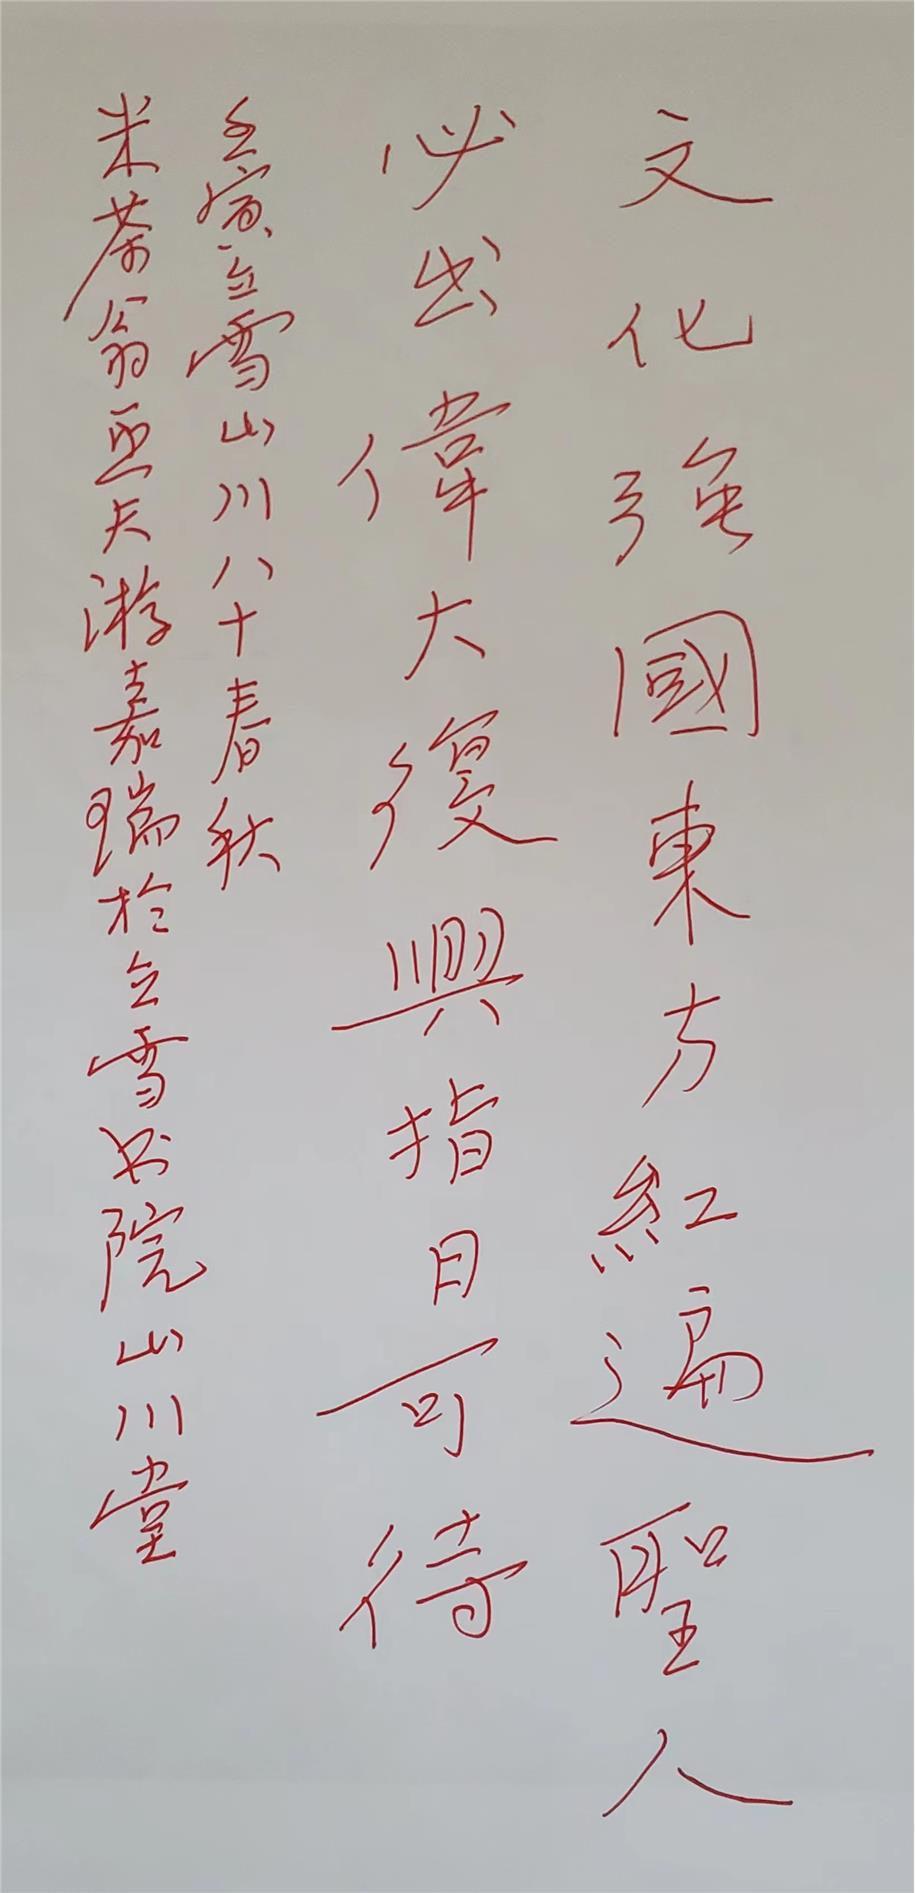 文化強國東方紅遍聖人
必出偉大復興指日可待
壬寅立雪山川八十春秋
米茶翁亞夫游嘉瑞於立雪书院山川堂